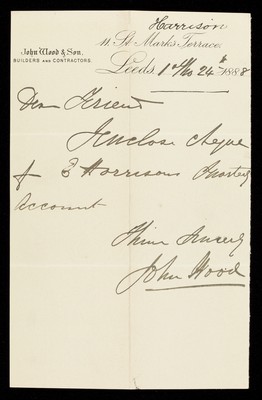 Harrison
John Wood & Son,
BUILDERS AND CONTRACTORS.
11. St Marks Terrace,
Leeds, 1st Mo 24th 1888
Dear Friend
I enclose Cheque
for B Harrisons Quarterly
Account
Thine Sincerely
John Wood